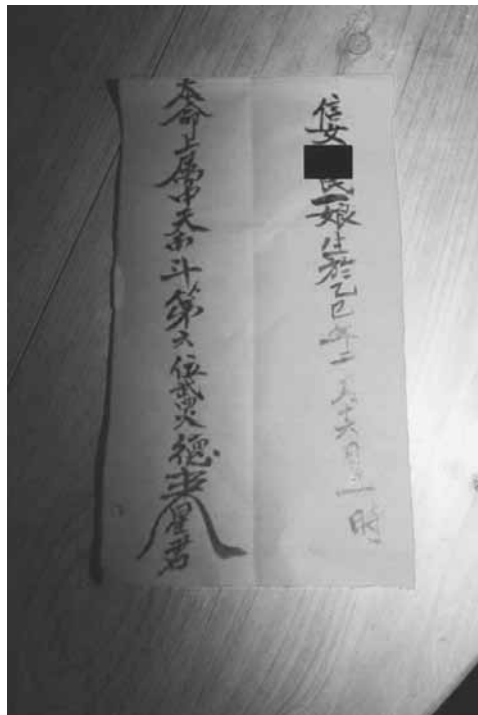 信女氏一娘生於乙巳年二月十六日時
本命上属中天斗第六位武曲火德星君